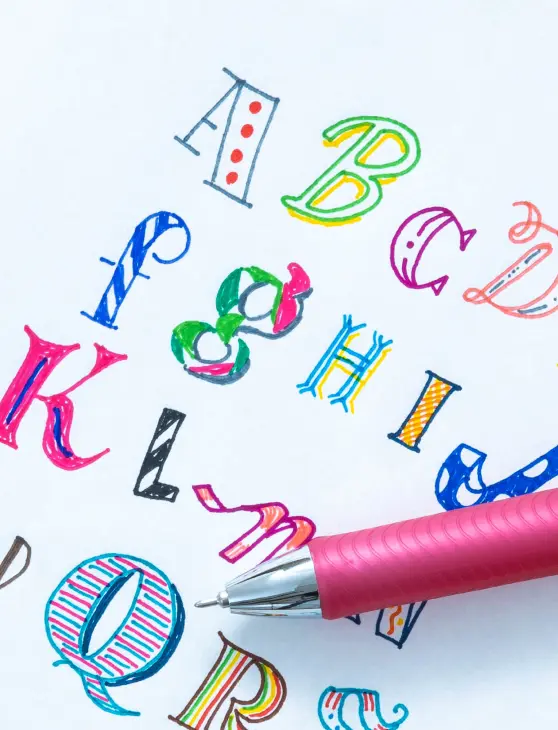 A B C D
f g H I J
K L m
Q R